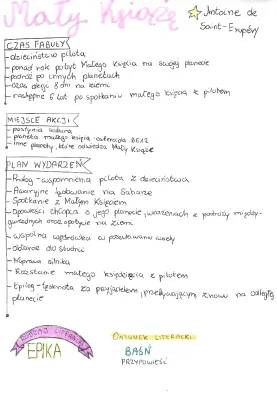 Mały Książę
Antoine de
Saint-Exupéry
CZAS FABUŁY
- dzieciństwo pilota
- ponad rok pobyt Małego Księcia na swojej planecie
- podróż po innych planetach
- czas akcji 8 dni na ziemi
- następne 6 lat po spotkaniu małego księcia z pilotem
MIEJSCE AKCJI
- pustynia Sahara
- planeta małego księcia - asteroida B612
- inne planety, które odwiedza Mały Książę
PLAN WYDARZEŃ
- Prolog - wspomnienia pilota z dzieciństwa
- Awaryjne lądowanie na Saharze
- Spotkanie z Małym Księciem
- Opowieści chłopca o jego planecie, wrażeniach z podróży między-
gwiezdnych oraz pobycie na Ziemi
- wspólna wędrówka w poszukiwaniu wody
- dotarcie do studni
- Naprawa silnika
- Rozstanie małego księcia z pilotem
- Epilog - tęsknota za przyjacielem, przebywającym znowu na odległej
planecie
RODZAJ LITERACKI
EPIKA
GATUNEK LITERACKI
BAŚŃ
PRZYPOWIEŚĆ